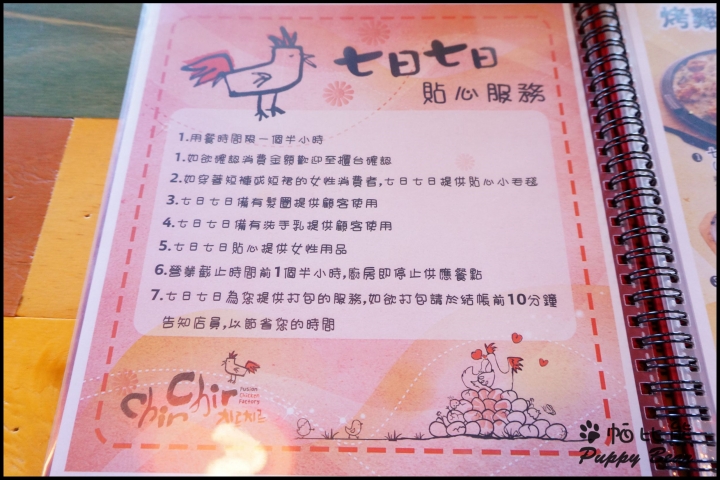 七日七日
貼心服務
烤雞
1.用餐時間限一個半小時
1.如欲確認消費金額歡迎至櫃台確認
2.如穿著短褲或短裙的女性消費者,七日七日提供貼心小毛毯
3.七日七日備有髮圈提供顧客使用
4.七日七日備有洗手乳提供顧客使用
5.七日七日貼心提供女性用品
6.營業截止時間前1個半小時,廚房即停止供應餐點
7.七日七日為您提供打包的服務,如欲打包請於結帳前10分鐘
告知店員,以節省您的時間
Chir Chir
Fusion
Chicken
Factory
치르치르
帕比
Puppy